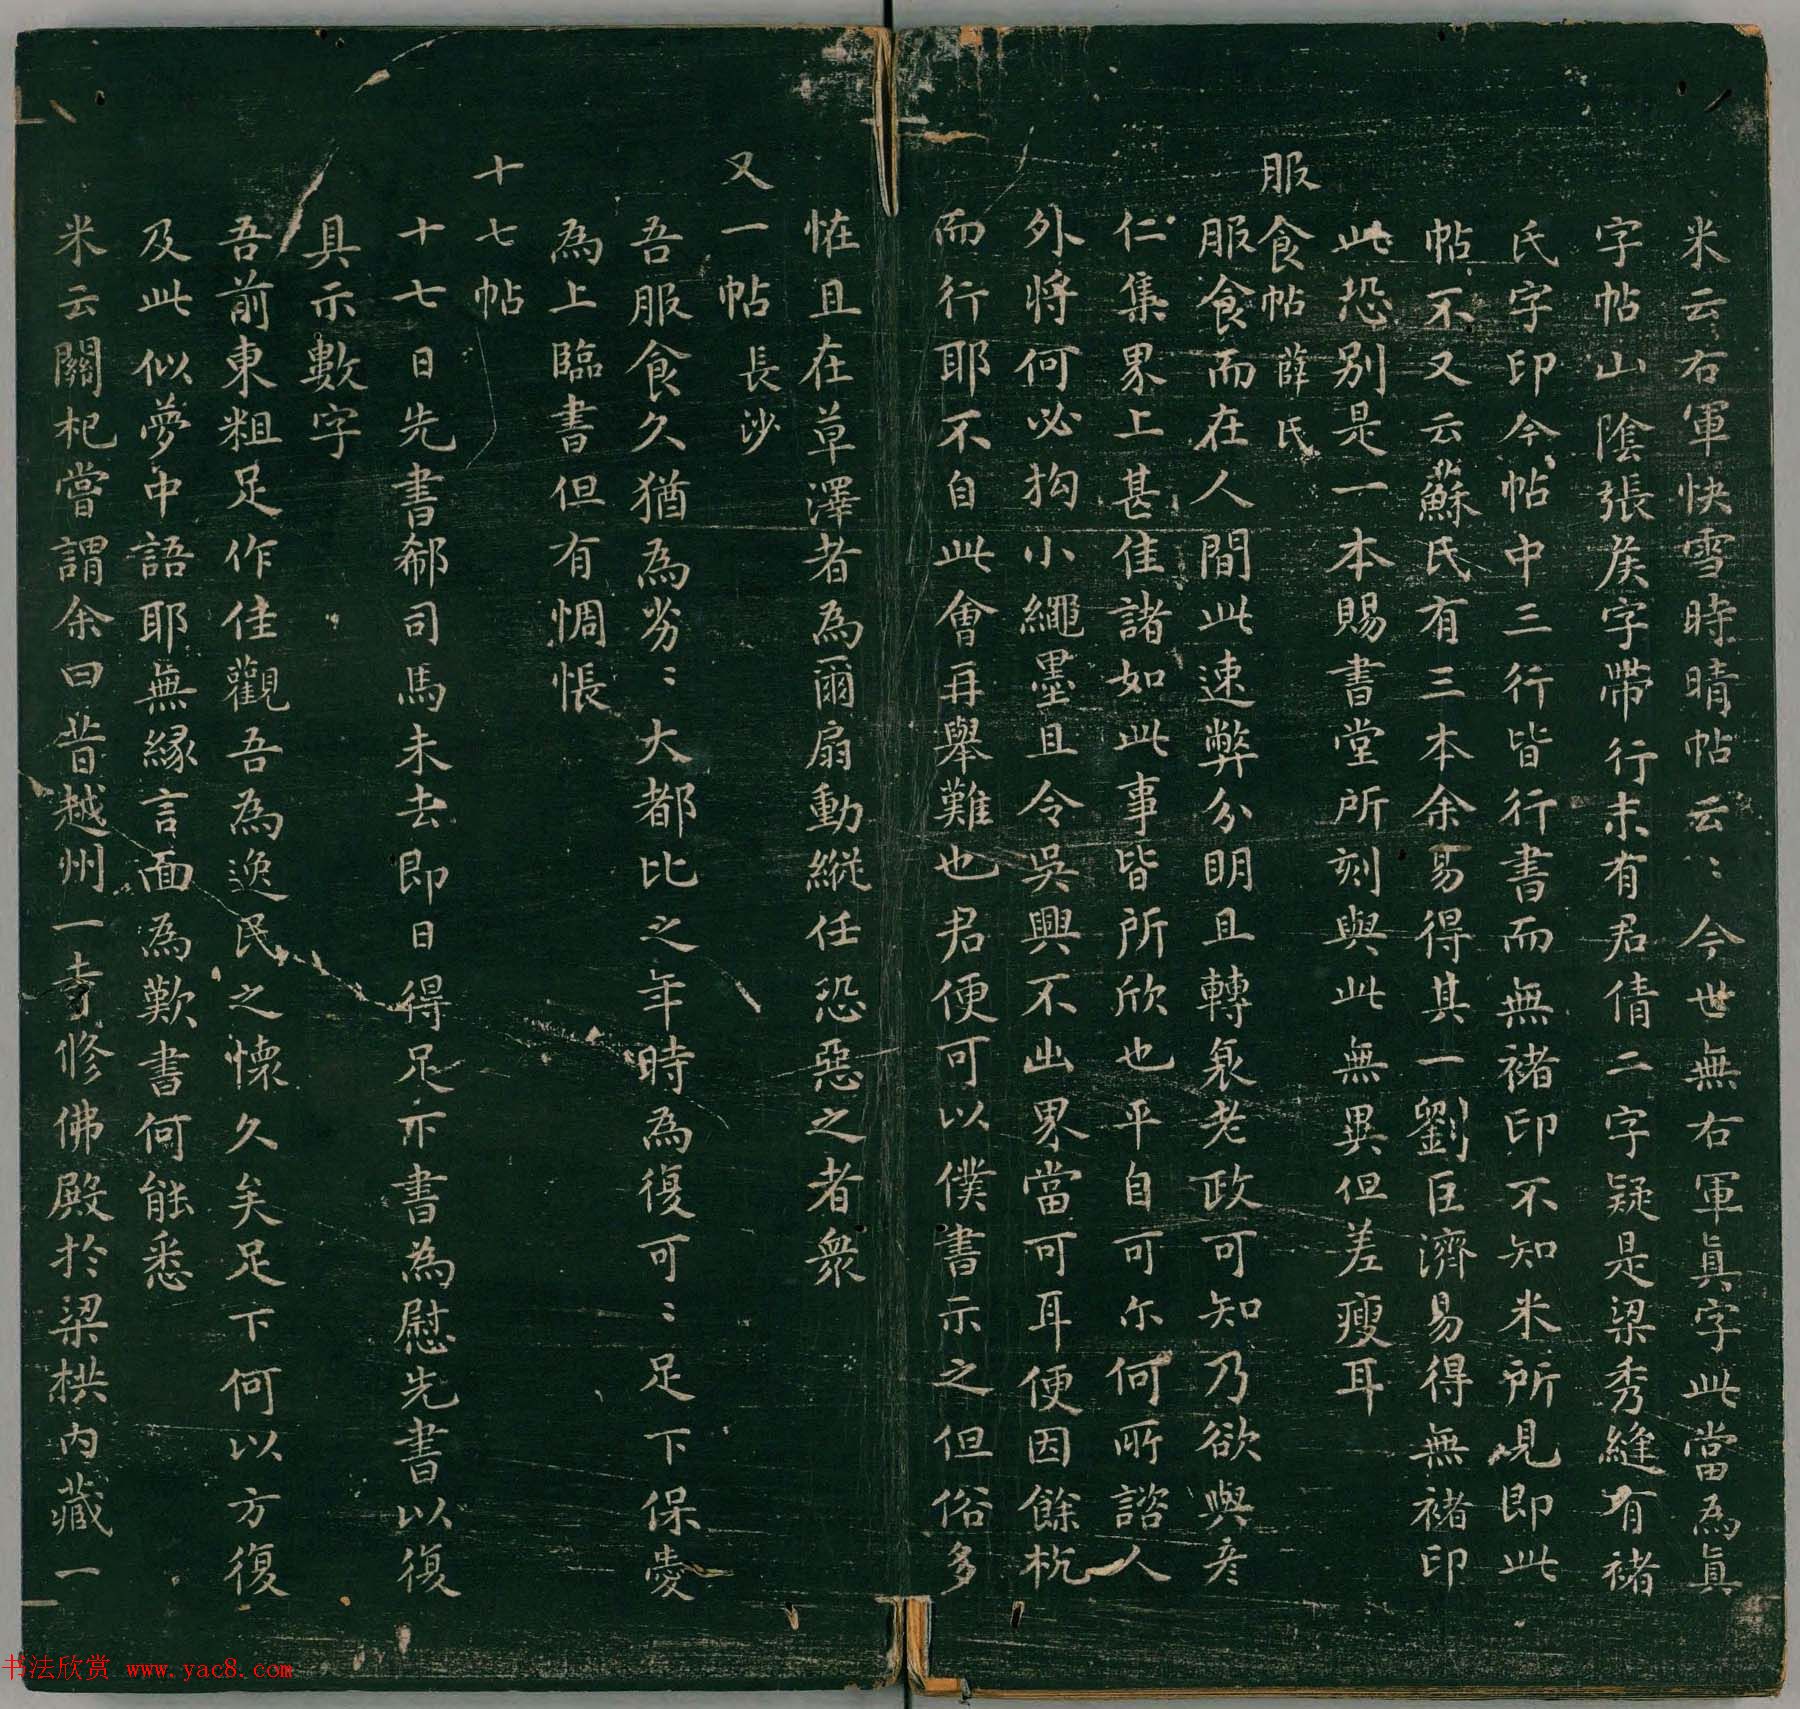 米云右軍快雪時晴帖云〻今世無右軍真字此當為真
字帖山陰張侯字帶行末有君倩二字疑是梁秀縫有褚
氏字印今帖中三行皆行書而無褚印不知米所見即此
帖不又云蘇氏有三本余易得其一劉巨濟易得無褚印
此恐別是一本賜書堂所刻與此無異但差瘦耳
服食帖 薛氏
服食而在人間此速弊分明且轉衰老政可知乃欲與彦
仁集界上甚佳諸如此事皆所欣也平自可尔何所諮人
外將何必拘小繩墨且令吳興不出界當可耳便因餘杭
而行耶不自此會再舉難也君便可以僕書示之但俗多
恠且在草澤者為爾扇動縱任恐惡之者衆
又一帖 長沙
吾服食久猶為劣〻大都比之年時為復可〻足下保愛
為上臨書但有惆悵
十七帖
十七日先書郗司馬未去即日得足下書為慰先書以復
具示數字
吾前東粗足作佳觀吾為逸民之懷久矣足下何以方復
及此似夢中語耶無緣言面為歎書何能悉
米云關杞嘗謂余曰昔越州一寺修佛殿於梁栱內藏一
书法欣赏 www.yac8.com